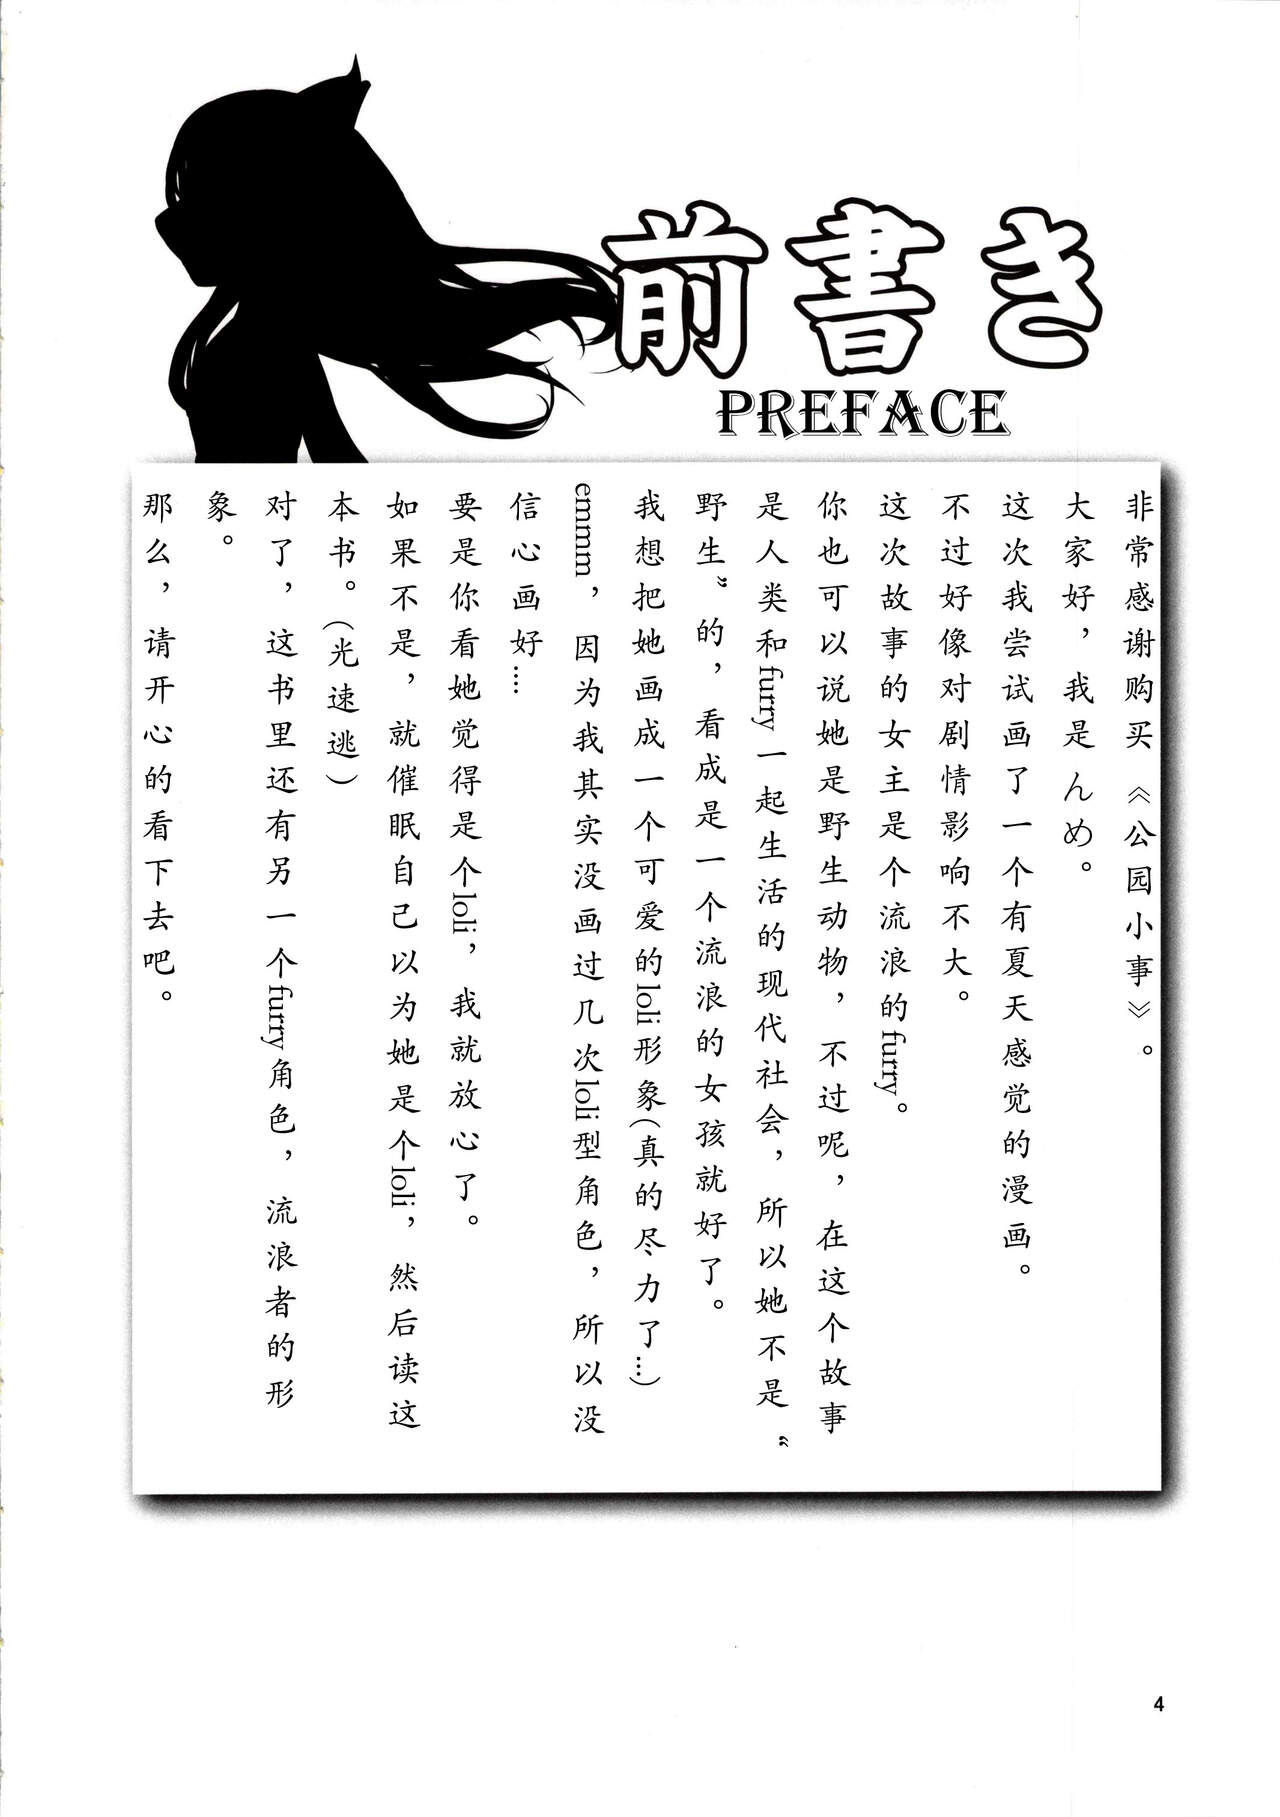 前書き
PREFACE
非常感谢购买《公园小事》。
大家好，我是んめ。
这次我尝试画了一个有夏天感觉的漫画。
不过好像对剧情影响不大。
这次故事的女主是个流浪的furry。
你也可以说她是野生动物，不过呢，在这个故事
是人类和furry一起生活的现代社会，所以她不是“
野生”的，看成是一个流浪的女孩就好了。
我想把她画成一个可爱的loli形象(真的尽力了...)
emmm，因为我其实没画过几次loli型角色，所以没
信心画好....
要是你看她觉得是个loli，我就放心了。
如果不是，就催眠自己以为她是个loli，然后读这
本书。(光速逃)
对了，这书里还有另一个furry角色，流浪者的形
象。
那么，请开心的看下去吧。
4